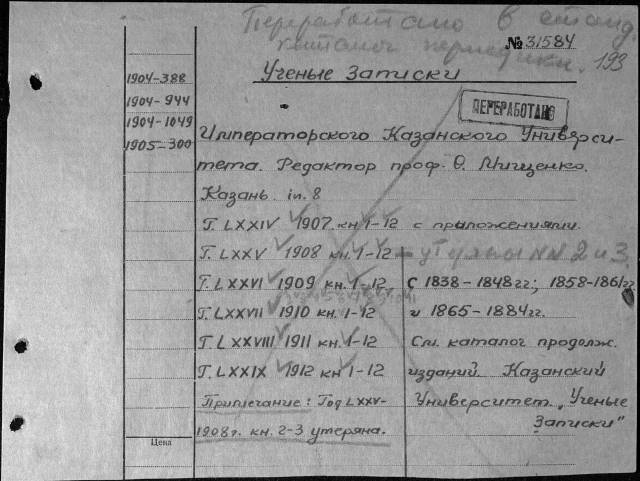 Переработано в станд.
каталог периодики. 193
№31584
Ученые Записки
1904-388
1904-944
1904-1049
1905-300
ПЕРЕРАБОТАНО
Императорского Казанского Универси-
тета. Редактор проф. Ѳ. Мищенко.
Казань. in. 8
Г. LXXIV 1907. кн. 1-12 с приложениями.
Г. LXXV 1908 кн. 1-12 + утеряны №№ 2 и 3.
Г. LXXVI 1909 кн. 1-12
Г. LXXVII 1910 кн. 1-12
Г. LXXVIII 1911 кн. 1-12
Г. LXXIX 1912 кн 1-12
Примечание: Год LXXV-
1908г. кн. 2-3 утеряна.
с 1838-1848гг; 1858-1861гг
и 1865-1884гг.
См. каталог продолж.
изданий. Казанский
Университет. „Ученые
Записки"
Цена